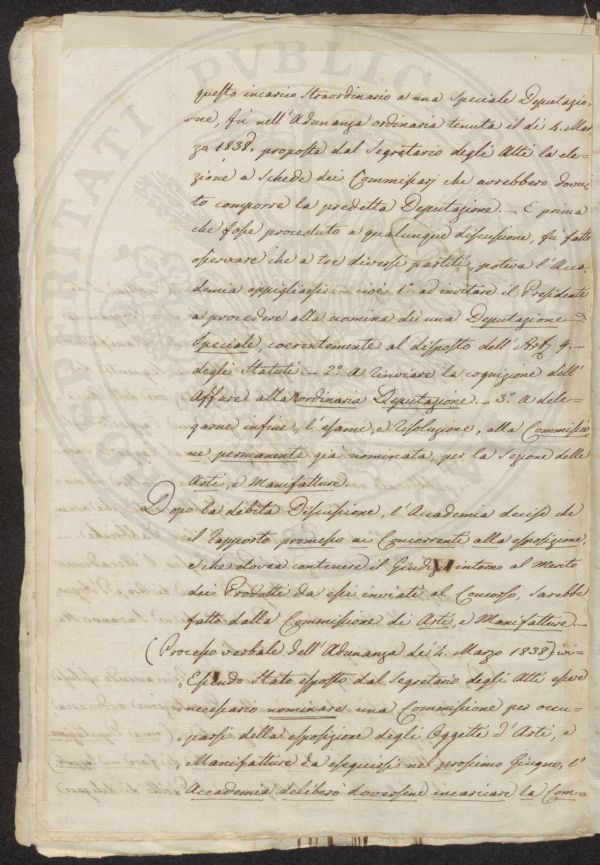 questo incarico straordinario a una speciale Deputazio-
ne, fù nell'Adunanza ordinaria tenuta il dì 4. Mar
zo 1838. proposta dal Segretario degli Atti la ele-
zione a schede dei Commissarj che avrebbero dovu
to comporre la predetta Deputazione. – E prima
che fosse proceduto a qualunque discussione, fù fatto
osservare che a tre diversi partiti poteva l'Acca-
demia appigliarsi – cioè 1°. ad invitare il Presidente
a procedere alla nomina di una Deputazione
Speciale, coerentemente al disposto dell'Art. 9. –
degli Statuti – 2°. A rinviare la cognizione dell'
Affare alla ordinaria Deputazione. – 3°. A dele-
garne infine, l'esame, e risoluzione, alla Commissio
ne permanente già nominata, per la Sezione delle
Arti, e Manifatture.
Dopo la debita Discussione, l'Accademia decise che
il rapporto promesso ai Concorrenti alla esposizione,
e che dovea contenere il Giudizi intorno al Merito
dei Prodotti da essi inviati al Concorso, sarebbe
fatto dalla Commissione di Arti, e Manifatture. –
(Processo verbale dell'Adunanza de' 4. Marzo 1838) ivi –
„Essendo stato esposto dal Segretario degli Atti essere
„necessario nominare una Commissione per occu-
„parsi della esposizione degli Oggetti d'Arti, e
„Manifatture da eseguirsi nel prossimo Giugno, l'
„Accademia deliberò doversene incaricare la Com=
PROSPERITATI PVBLIC